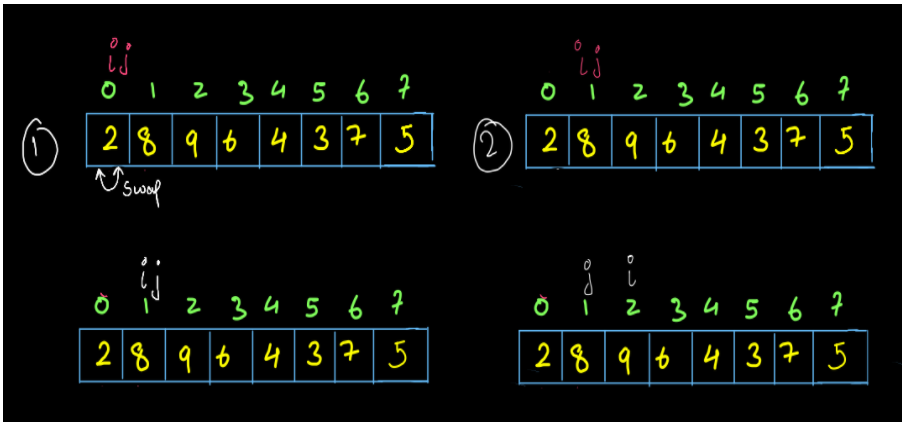 i j
0 1 2 3 4 5 6 7
① 2 8 9 6 4 3 7 5
swap
i j
0 1 2 3 4 5 6 7
② 2 8 9 6 4 3 7 5
i j
0 1 2 3 4 5 6 7
2 8 9 6 4 3 7 5
j i
0 1 2 3 4 5 6 7
2 8 9 6 4 3 7 5